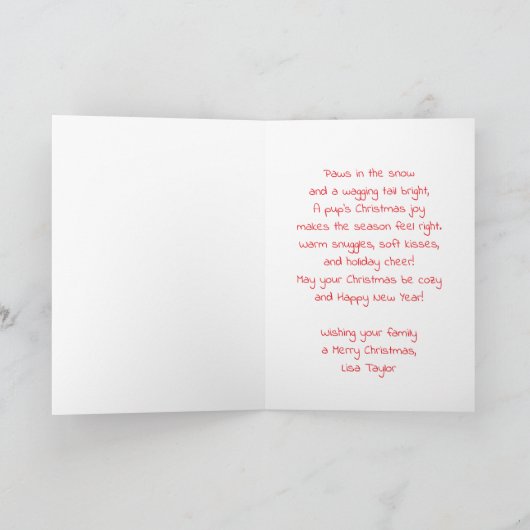 Paws in the snow
and a wagging tail bright,
A pup's Christmas joy
makes the season feel right.
warm snuggles, soft kisses,
and holiday cheer!
May your Christmas be cozy
and Happy New Year!
Wishing your family
a Merry Christmas,
Lisa Taylor